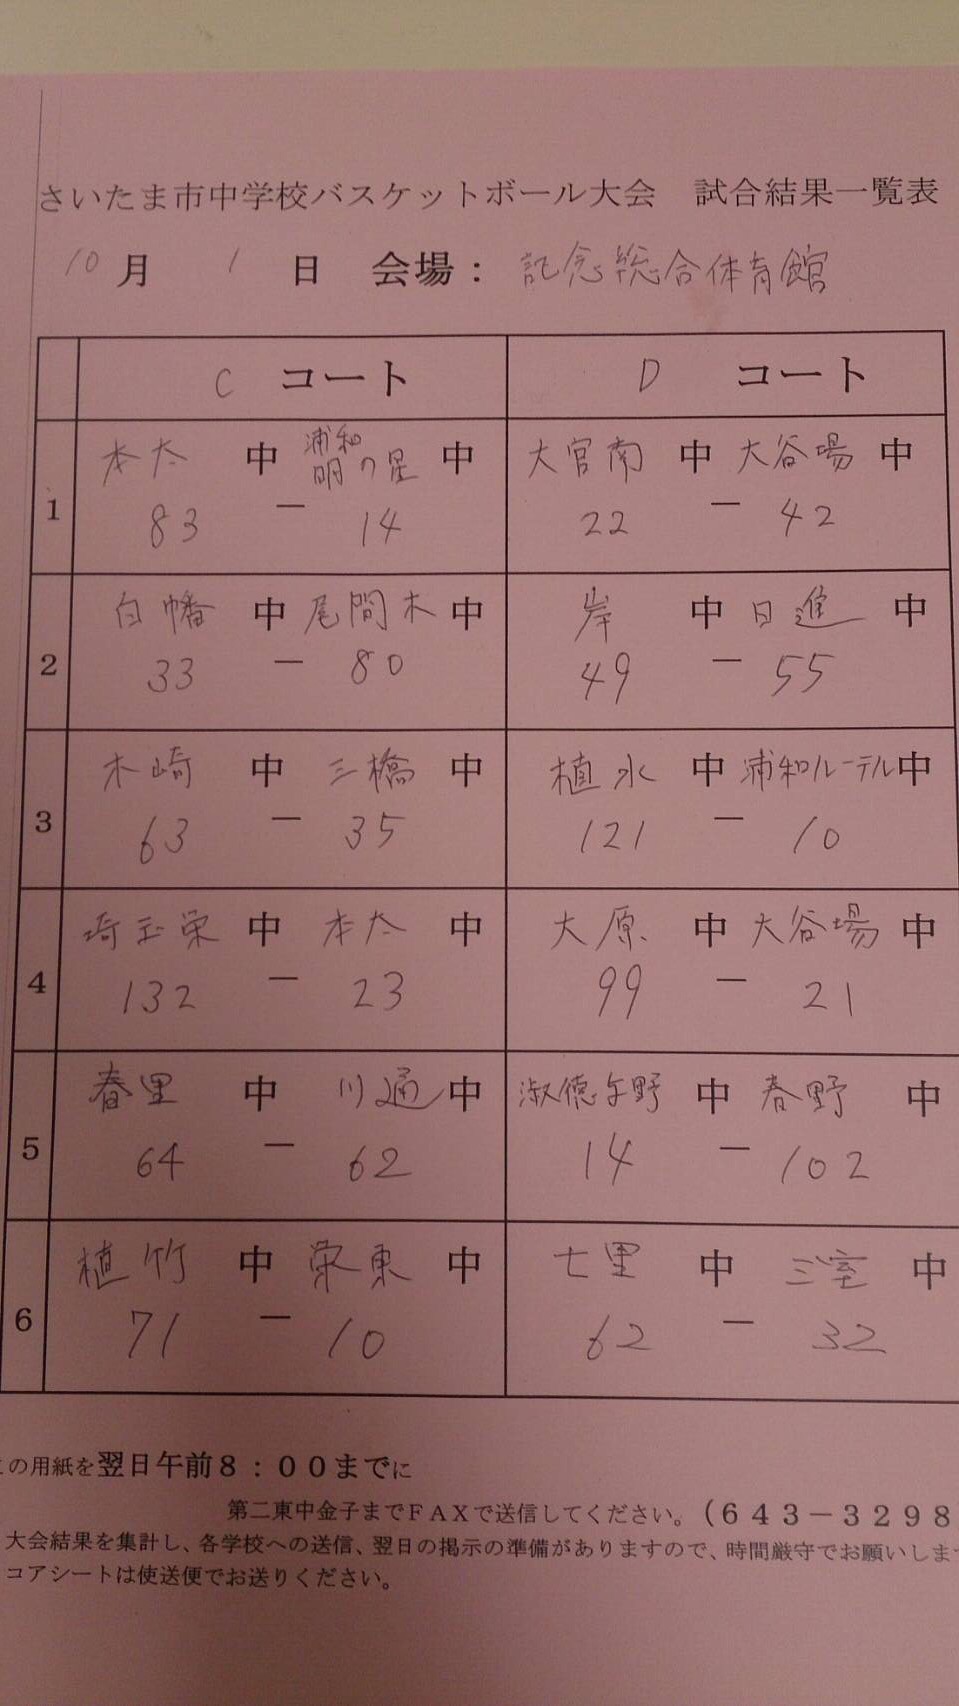 さいたま市中学校バスケットボール大会 試合結果一覧表
10月 1日 会場：記念総合体育館
C コート D コート
1 本太 中 浦和明の星 中 大宮南 中 大谷場 中
83 － 14 22 － 42
2 白幡 中 尾間木 中 岸 中 日進 中
33 － 80 49 － 55
3 木崎 中 三橋 中 植水 中 浦和ルーテル 中
63 － 35 121 － 10
4 埼玉栄 中 本太 中 大原 中 大谷場 中
132 － 23 99 － 21
5 春里 中 川通 中 淑徳与野 中 春野 中
64 － 62 14 － 102
6 植竹 中 栄東 中 七里 中 三室 中
71 － 10 62 － 32
の用紙を翌日午前８：００までに
第二東中金子までＦＡＸで送信してください。（６４３－３２９８
大会結果を集計し、各学校への送信、翌日の掲示の準備がありますので、時間厳守でお願いしま
コアシートは使送便でお送りください。